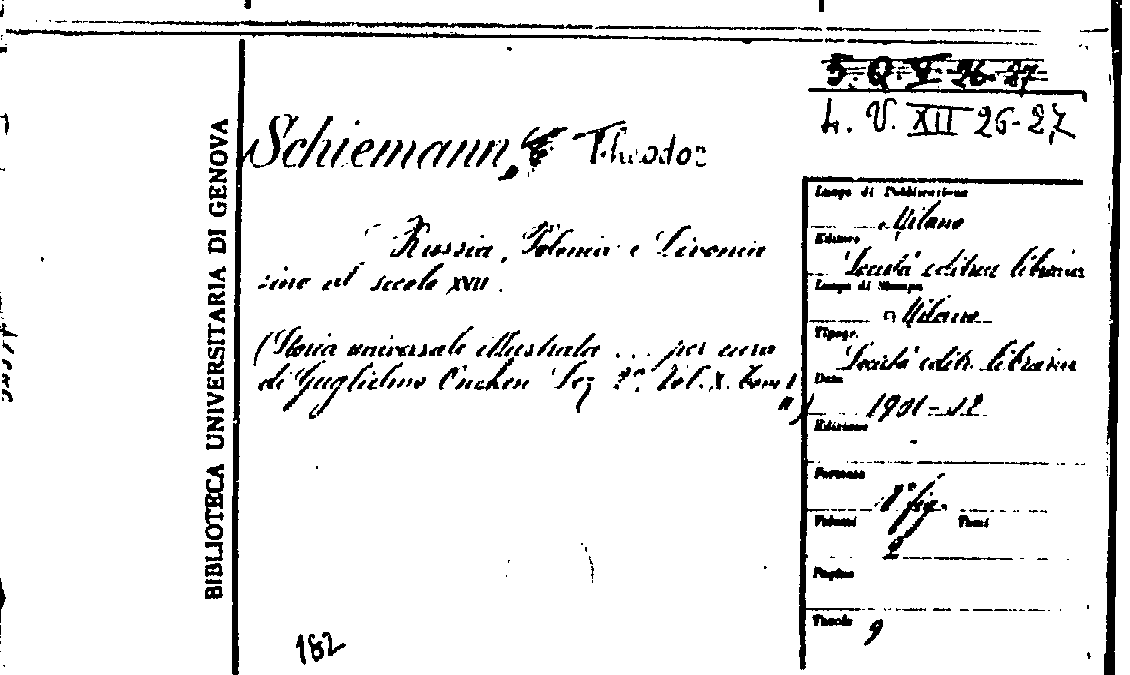 5. Q. V. 26-27
L. V. XII 26-27
BIBLIOTECA UNIVERSITARIA DI GENOVA
Schiemann, Theodor
Russia, Polonia e Livonia
sino al secolo XVII.
(Storia universale illustrata ... per cura
di Guglielmo Onchen Sez 2ª. Vol. X. Tomi I
II)
Luogo di Pubblicazione
Milano
Editore
Società editrice libraria
Luogo di Stampa
Milano
Tipogr.
Società editr. libraria
Data
1901-12
Edizione
Formato
8° fig.
Volumi
2
Tomi
Pagine
Tavole
9
182